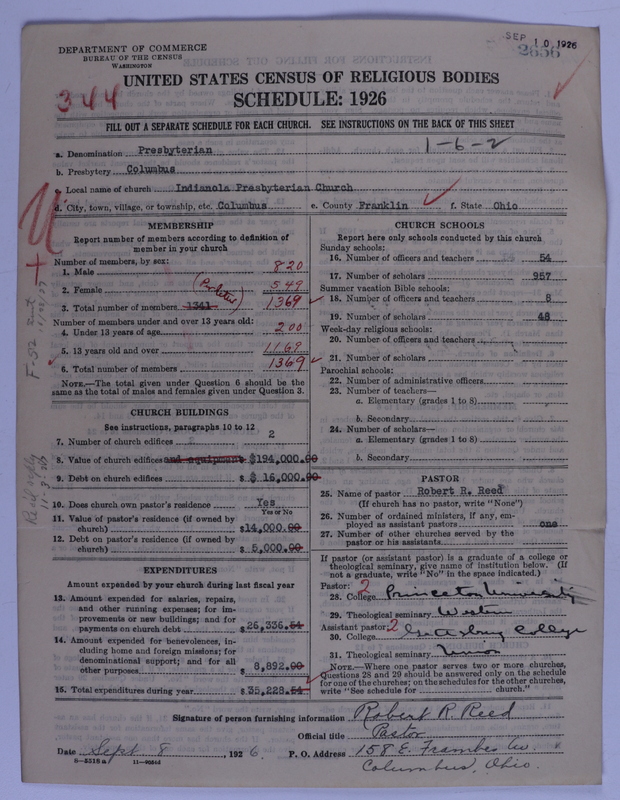 DEPARTMENT OF COMMERCE
BUREAU OF THE CENSUS
WASHINGTON
SEP 10 1926
2656
UNITED STATES CENSUS OF RELIGIOUS BODIES
344
SCHEDULE: 1926
FILL OUT A SEPARATE SCHEDULE FOR EACH CHURCH. SEE INSTRUCTIONS ON THE BACK OF THIS SHEET
1-6-2
a. Denomination Presbyterian
b. Presbytery Columbus
c. Local name of church Indianola Presbyterian Church
d. City, town, village, or township, etc. Columbus e. County Franklin f. State Ohio
MEMBERSHIP
Report number of members according to definition of
member in your church
Number of members, by sex:
1. Male 820
2. Female 549
3. Total number of members 1341 1369
Number of members under and over 13 years old:
4. Under 13 years of age 200
5. 13 years old and over 1169
6. Total number of members 1369
NOTE.—The total given under Question 6 should be the
same as the total of males and females given under Question 3.
CHURCH BUILDINGS
See instructions, paragraphs 10 to 12
7. Number of church edifices 2
8. Value of church edifices and equipment $194,000.00
9. Debt on church edifices $ 16,000.00
10. Does church own pastor's residence Yes
Yes or No
11. Value of pastor's residence (if owned by
church) $14,000.00
12. Debt on pastor's residence (if owned by
church) $ 5,000.00
EXPENDITURES
Amount expended by your church during last fiscal year
13. Amount expended for salaries, repairs,
and other running expenses; for im-
provements or new buildings; and for
payments on church debt $26,336.54
14. Amount expended for benevolences, in-
cluding home and foreign missions; for
denominational support; and for all
other purposes $ 8,892.00
15. Total expenditures during year $35,228.54
CHURCH SCHOOLS
Report here only schools conducted by this church
Sunday schools:
16. Number of officers and teachers 54
17. Number of scholars 957
Summer vacation Bible schools:
18. Number of officers and teachers 8
19. Number of scholars 48
Week-day religious schools:
20. Number of officers and teachers
21. Number of scholars
Parochial schools:
22. Number of administrative officers
23. Number of teachers—
a. Elementary (grades 1 to 8)
b. Secondary
24. Number of scholars—
a. Elementary (grades 1 to 8)
b. Secondary
PASTOR
25. Name of pastor Robert R. Reed
(If church has no pastor, write "None")
26. Number of ordained ministers, if any, em-
ployed as assistant pastors one
27. Number of other churches served by the
pastor or his assistants
If pastor (or assistant pastor) is a graduate of a college or
theological seminary, give name of institution below. (If
not a graduate, write "No" in the space indicated.)
Pastor: 2
28. College Princeton University
29. Theological seminary Western
Assistant pastor: 2
30. College Gettysburg College
31. Theological seminary Union
NOTE.—Where one pastor serves two or more churches,
Questions 28 and 29 should be answered only on the schedule
for one of the churches; on the schedules for the other churches,
write "See schedule for church."
Signature of person furnishing information Robert R. Reed
Official title Pastor
Date Sept 8, 1926. P. O. Address 158 E. Frambes Av.
Columbus, Ohio.
8-5518a 11-9056d